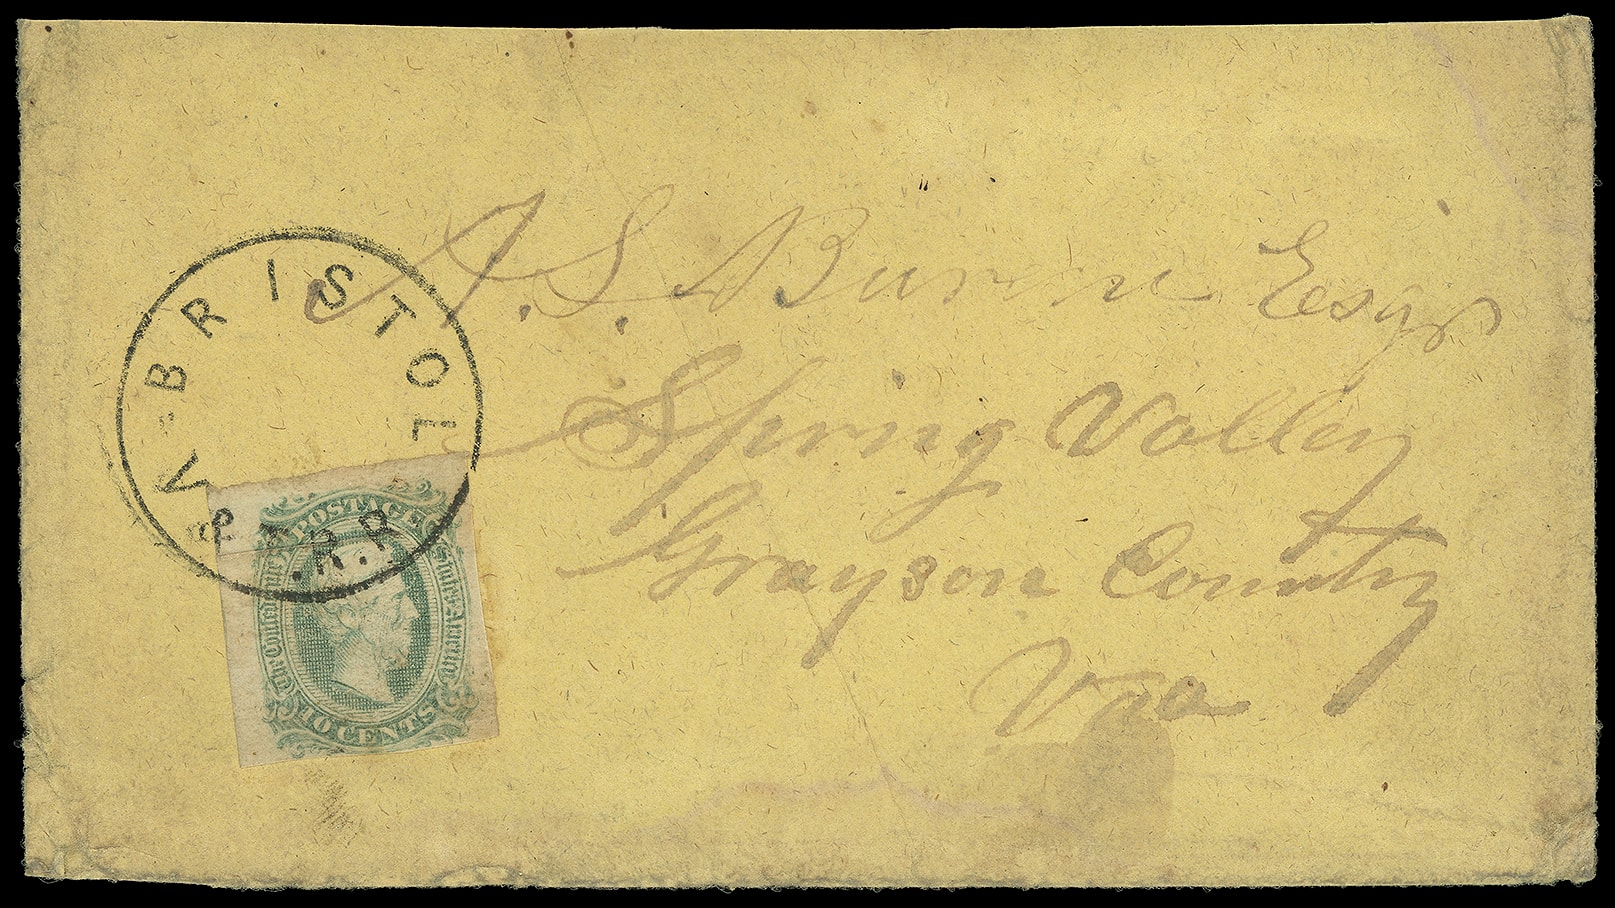 VA-BRISTOL
&T.R.R
J. S. Burnn Esqr
Spring Valley
Grayson County
Vaa
POSTAGE
The Confederate States America
10 CENTS